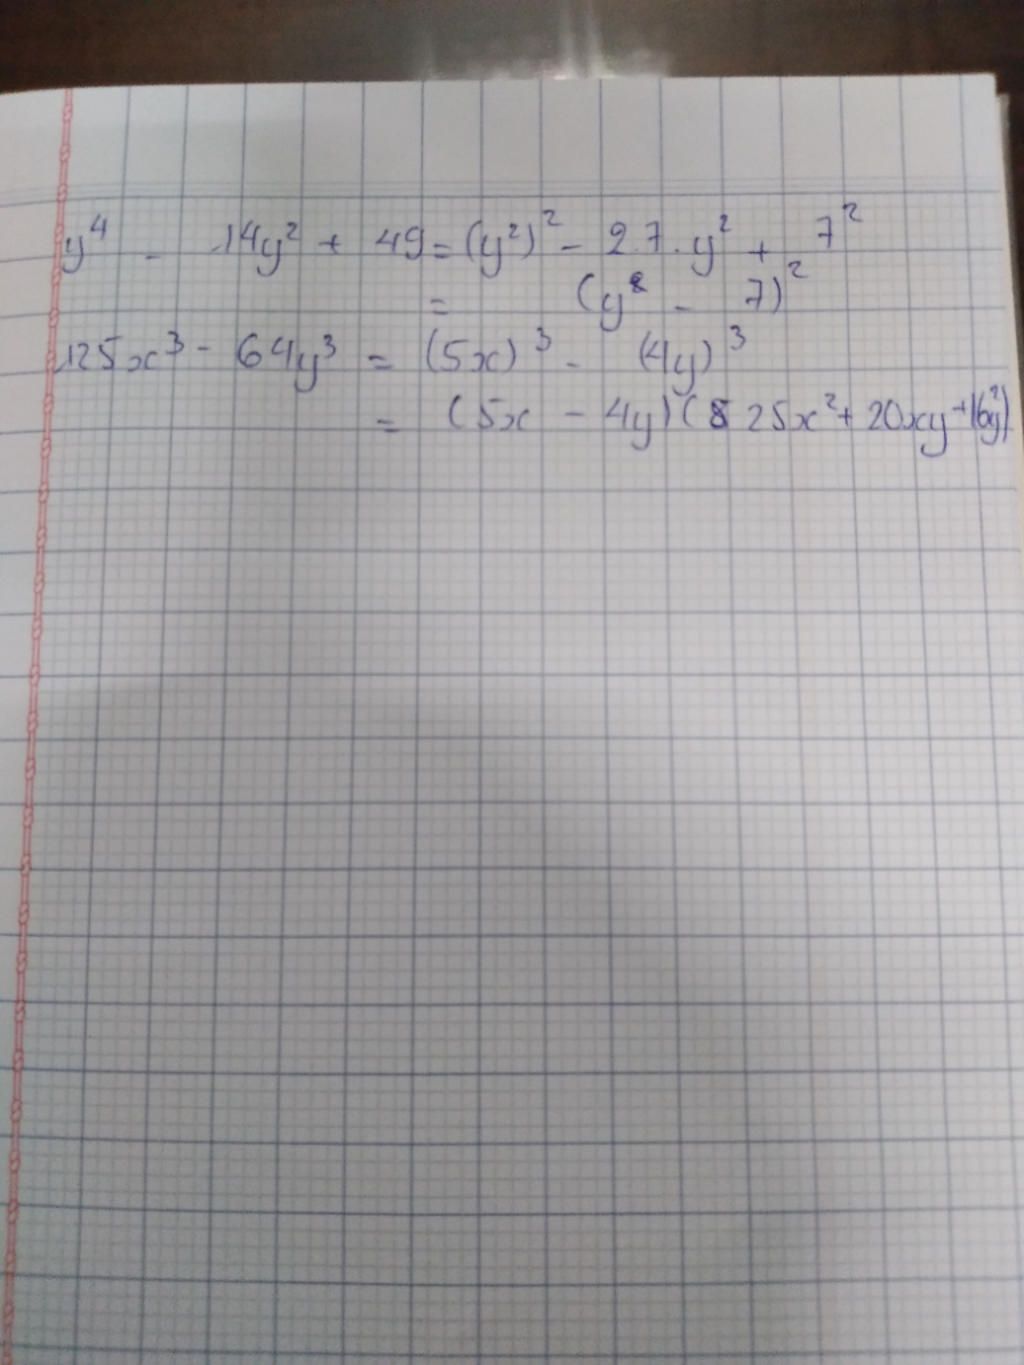 y⁴ - 14y² + 49 = (y²)² - 2.7.y² + 7²
= (y² - 7)²
125x³ - 64y³ = (5x)³ - (4y)³
= (5x - 4y)(25x² + 20xy + 16y²)